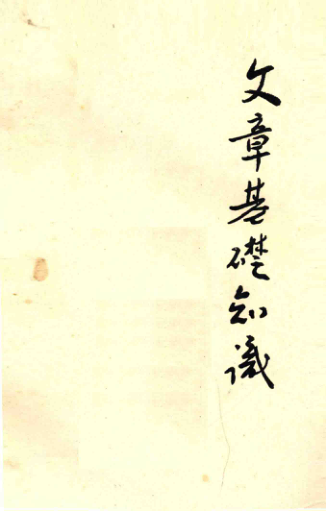 文章基礎知识